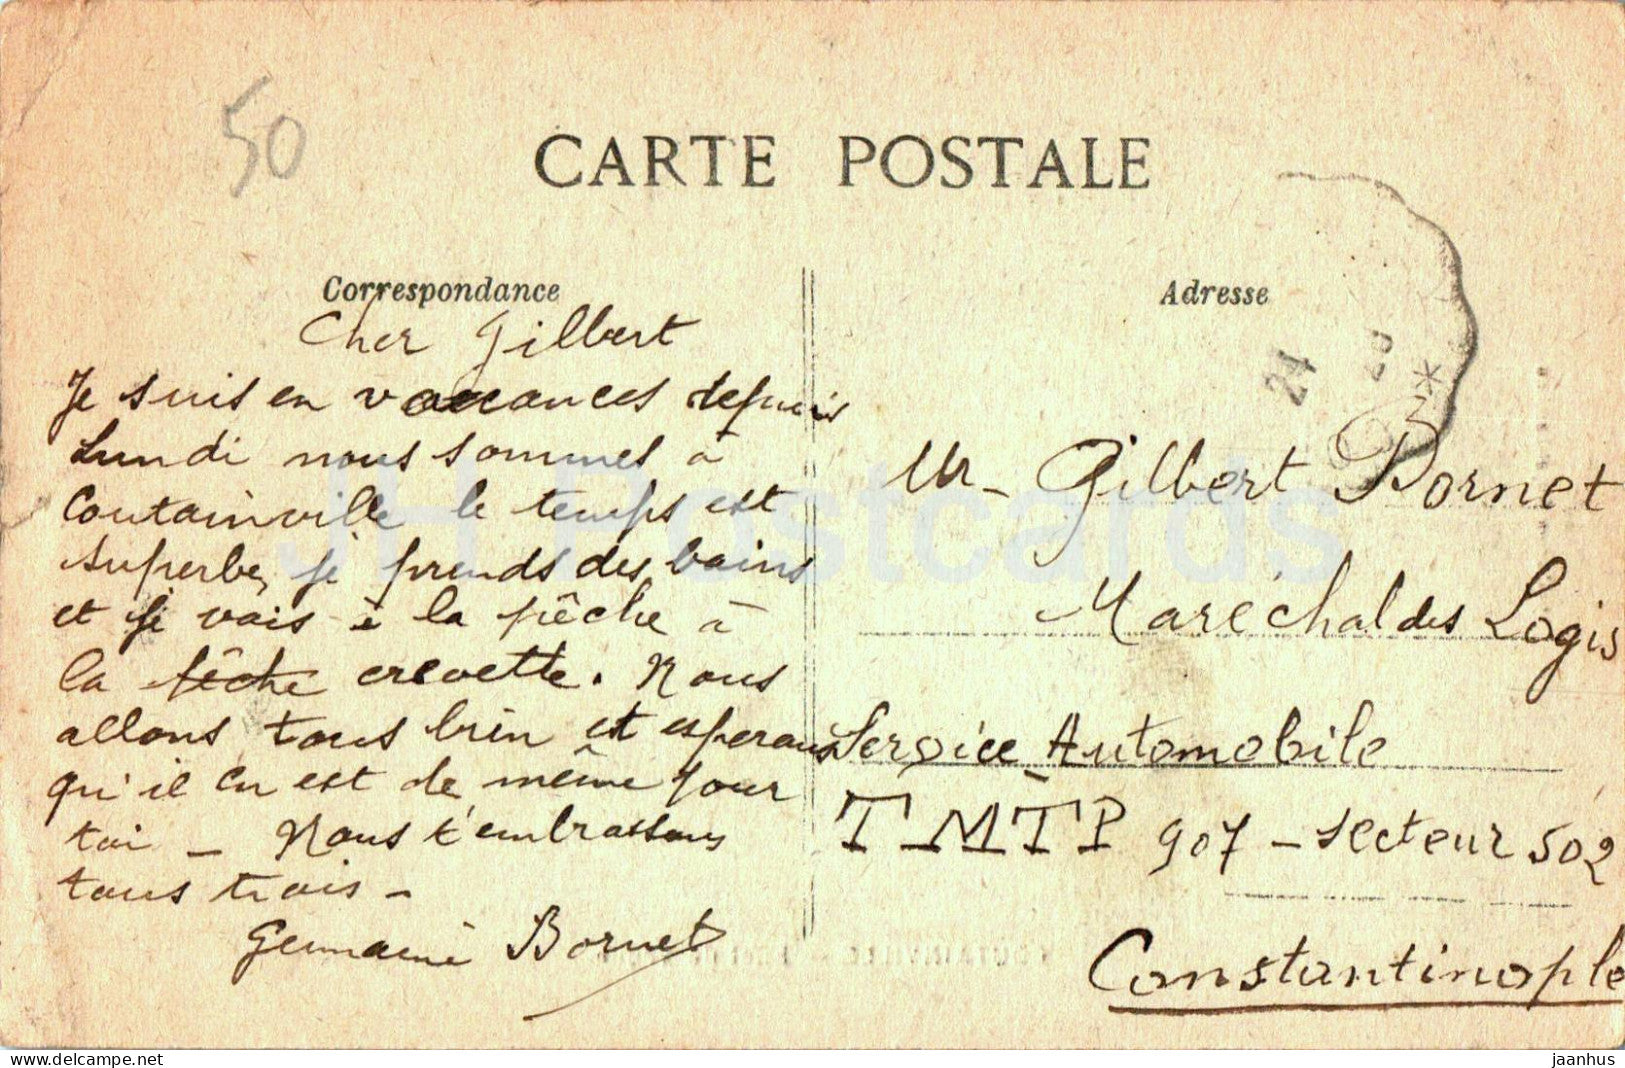 50
CARTE POSTALE
Correspondance
Cher Gilbert
Je suis en vacances depuis
Lundi nous sommes à
Coutainville le temps est
superbe, je prends des bains
et je vais à la pêche à
la pêche crevette. Nous
allons tous bien et esperons
qu'il en est de même pour
toi — Nous t'embrassons
tous trois —
Germaine Bornet
Adresse
24
Mr - Gilbert Bornet
Maréchal des Logis
Service Automobile
TMTP 907 - secteur 502
Constantinople
JH Postcards
delcampe.net
jaanhus